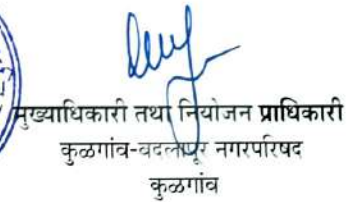 मुख्याधिकारी तथा नियोजन प्राधिकारी
कुळगांव-बदलापूर नगरपरिषद
कुळगांव